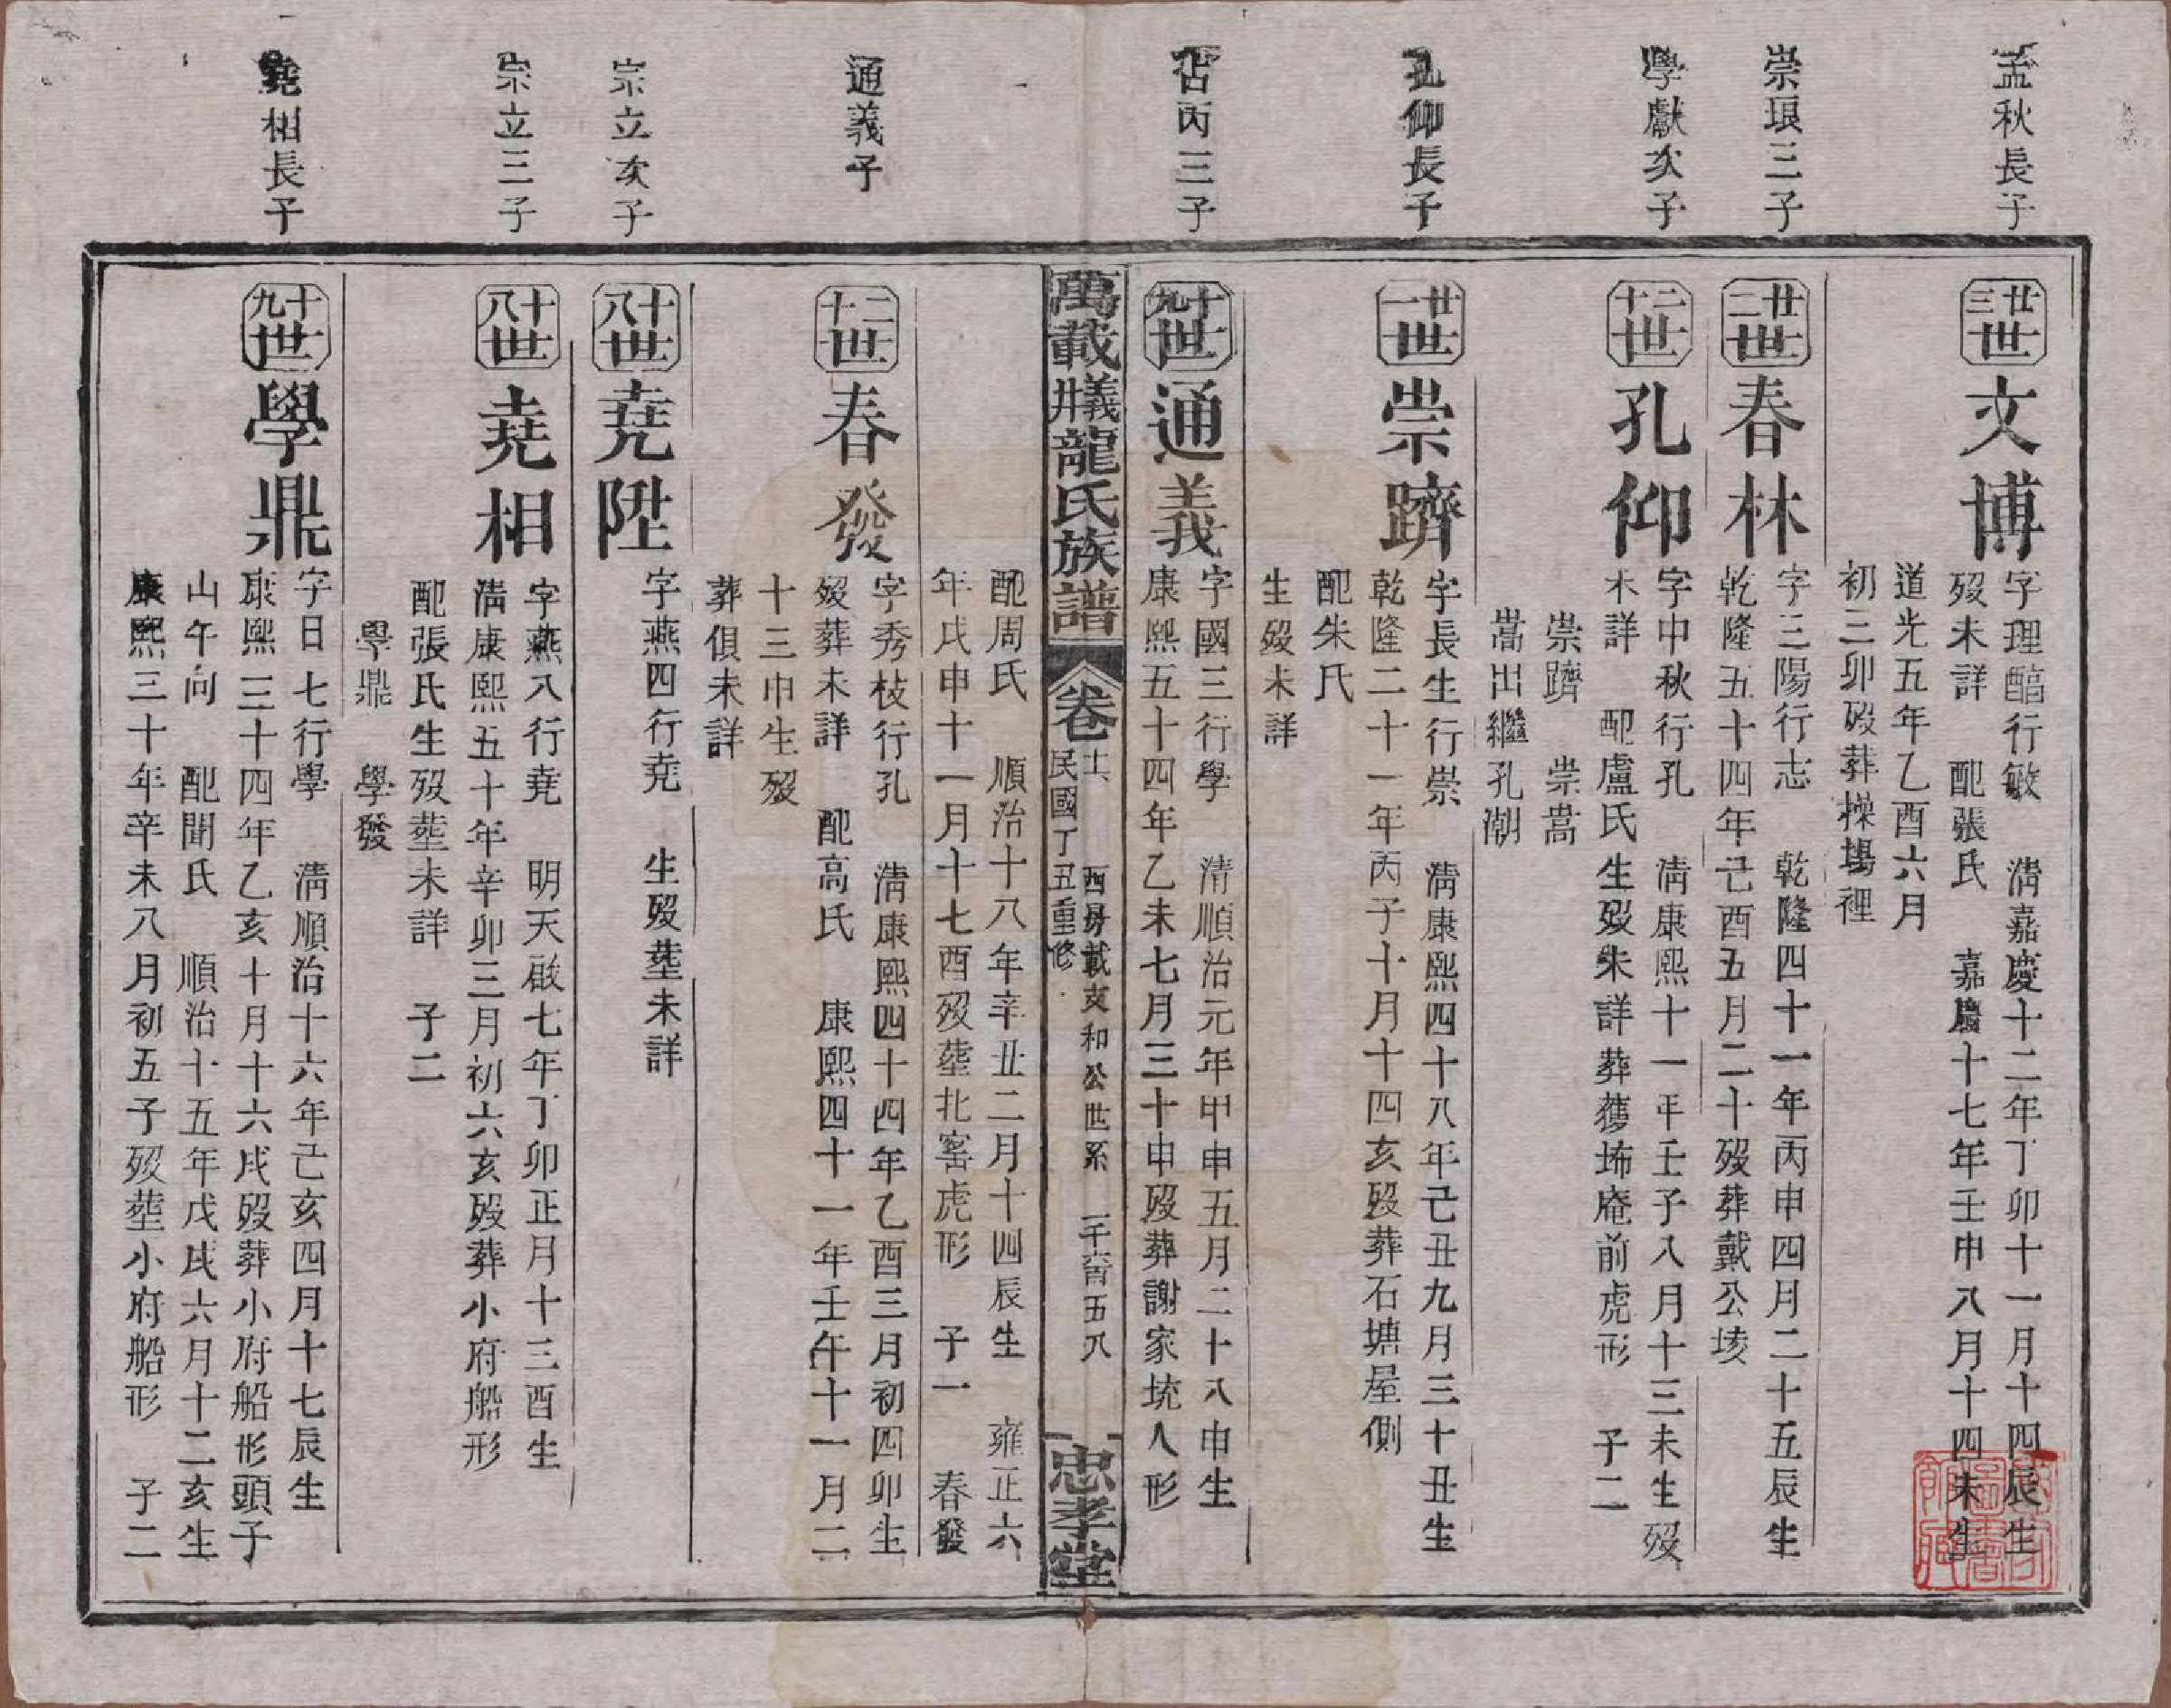 孟秋長子
廿三世
文博
字理醕行敏 清嘉慶十二年丁卯十一月十四辰生
歿未詳 配張氏 嘉慶十七年壬申八月十四未生
道光五年乙酉六月
初三卯歿葬操場裡
崇琅三子
廿二世
春林
字三陽行志 乾隆四十一年丙申四月二十五辰生
乾隆五十四年己酉五月二十歿葬戴公垓
學獻次子
二十世
孔仰
字中秋行孔 清康熙十一年壬子八月十三未生歿
未詳 配盧氏生歿未詳葬舊㘵庵前虎形 子二
崇躋 崇嵩
嵩出繼孔潮
孔仰長子
廿一世
崇躋
字長生行崇 清康熙四十八年己丑九月三十丑生
乾隆二十一年丙子十月十四亥歿葬石塘屋側
配朱氏
生歿未詳
占丙三子
十九世
通義
字國三行學 清順治元年甲申五月二十八申生
康熙五十四年乙未七月三十申歿葬謝家垅人形
萬載㵎義龍氏族譜
卷十六
民國丁丑重修
西房載支和公世系 一千六百五八
忠孝堂
配周氏 順治十八年辛丑二月十四辰生 雍正六
年戊申十一月十七酉歿塟北窰虎形 子一 春發
通義子
二十世
春發
字秀枝行孔 清康熙四十四年乙酉三月初四卯生
歿葬未詳 配高氏 康熙四十一年壬午十一月二
十三申生歿
葬俱未詳
宗立次子
十八世
堯陞
字燕四行堯 生歿塟未詳
宗立三子
十八世
堯相
字燕八行堯 明天啟七年丁卯正月十三酉生
清康熙五十年辛卯三月初六亥歿葬小府船形
配張氏生歿塟未詳 子二
學鼎 學發
堯相長子
十九世
學鼎
字日七行學 清順治十六年己亥四月十七辰生
康熙三十四年乙亥十月十六戌歿葬小府船形頭子
山午向 配聞氏 順治十五年戊戌六月十二亥生
康熙三十年辛未八月初五子歿塟小府船形 子二